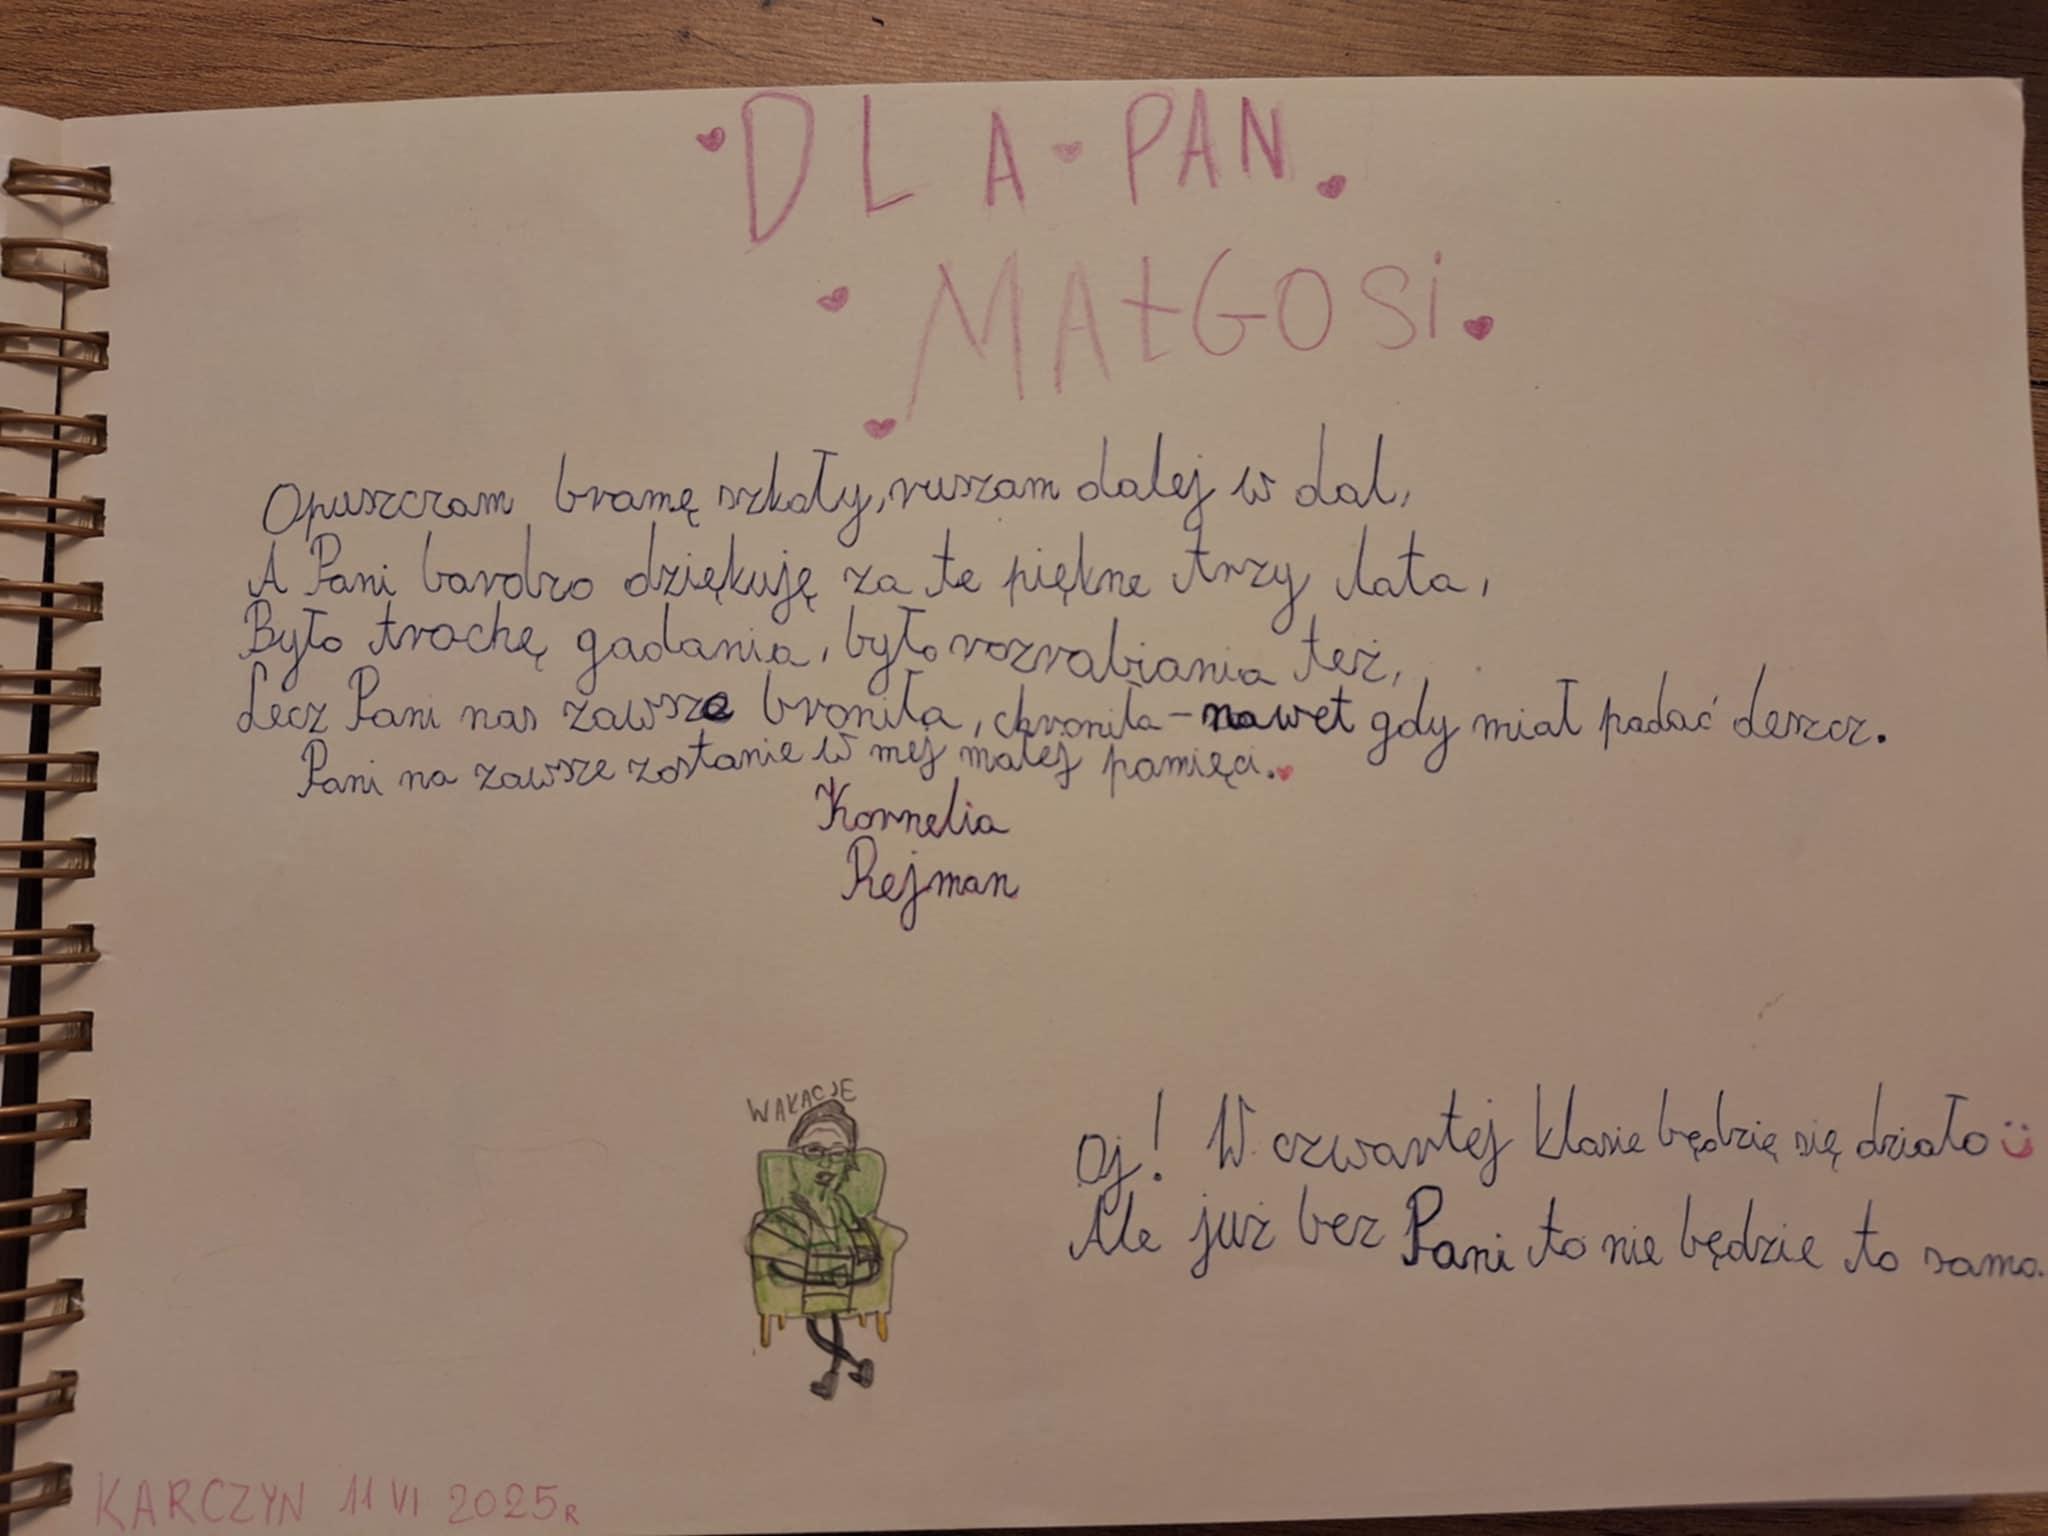 DLA PAN
MAŁGOSI
Opuszczam bramę szkoły, ruszam dalej w dal,
A Pani bardzo dziękuję za te piękne trzy lata,
Było trochę gadania, było rozrabiania też,
Lecz Pani nas zawsze broniła, chroniła - nawet gdy miał padać deszcz.
Pani na zawsze zostanie w mej małej pamięci.
Kornelia
Rejman
WAKACJE
Oj! W czwartej klasie będzie się działo
Ale już bez Pani to nie będzie to samo.
KARCZYN 11 VI 2025r